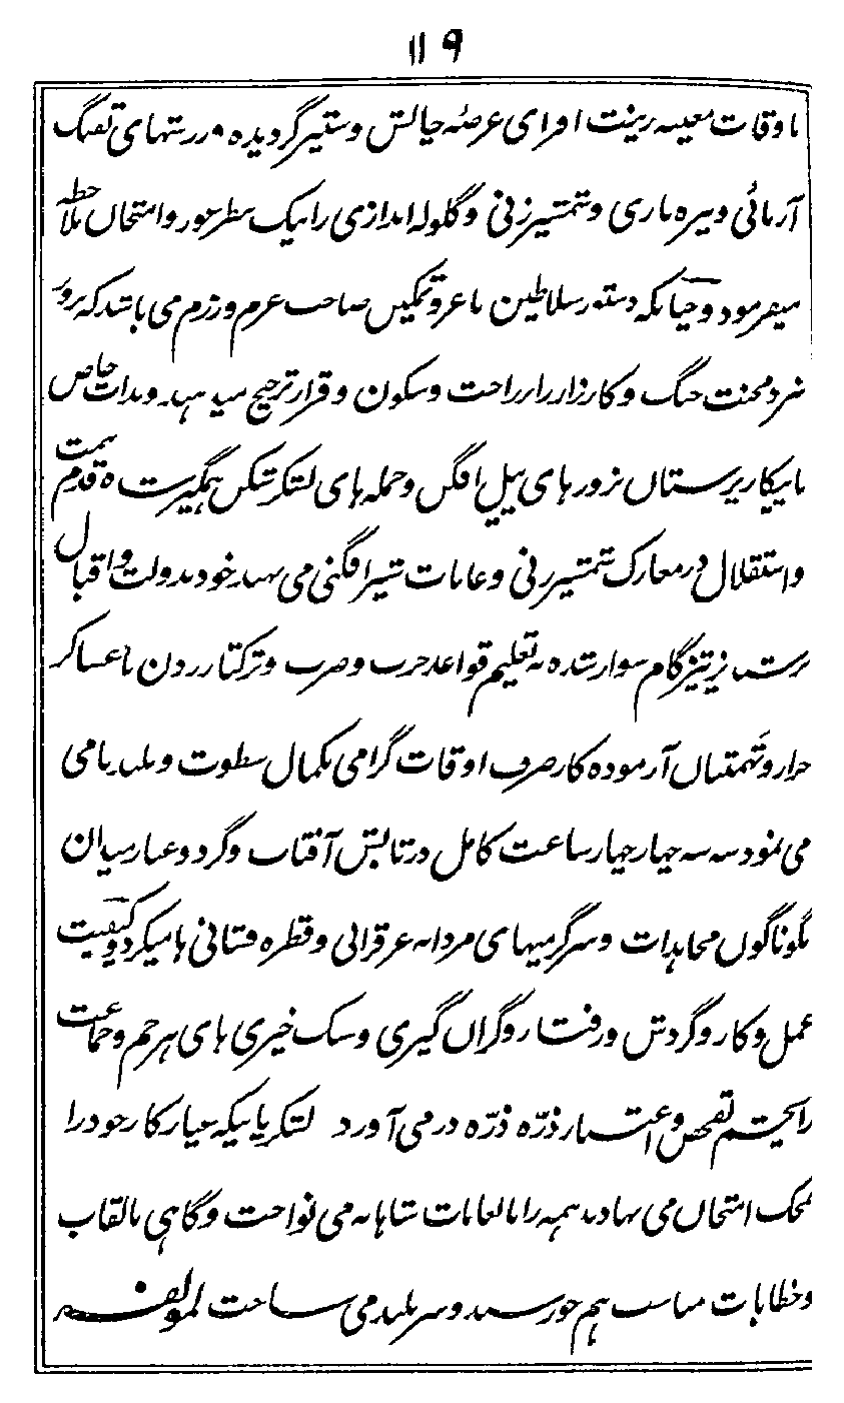 ۱۱۹
باوقات معینه زینت افزای عرصهٔ چالش و ستیز گردیده ورزشهای تفنگ
آزمائی و نیزه بازی و شمشیر زنی و گلوله اندازی را بیک نظر غور و امتحان ملاحظه
میفرمود و چنانکه دستور سلاطین با عز و تمکین صاحب عزم و رزم می باشد که بروز
نبرد محنت جنگ و کارزار را بر راحت و سکون و قرار ترجیح میدهند و بذات خاص
با پیکار پرستان بزورهای پیل افگن و حمله های لشکر شکن همگی همت و قدم
واستقلال در معارک شمشیر زنی و غابات شیر افگنی می نهند خود بدولت و اقبال
بر سمند تیزگام سوار شده به تعلیم قواعد حرب و ضرب و ترکتاز زدن با عساکر
جرار و تهمتنان آزموده کار صرف اوقات گرامی بکمال سطوت و بلند نامی
می نمود سه سه چهار چهار ساعت کامل در تابش آفتاب و گرد و غبار میدان
بگوناگون مجاهدات و سرگرمیهای مردانه عرقرانی و قطره فشانی ها میکرد و کیفیت
عمل و کار و گردش و رفتار و گران گیری و سبک خیزی های هر حم و جماعت
را بچشم تفحص و اعتبار ذره ذره در می آورد لشکریانیکه عیار کار خود را
بمحک امتحان می نهادند همه را بانعامات شاهانه می نواخت و گاهی بالقاب
وخطابات مناسب هم خورسند و سر بلند می ساخت لمولفه